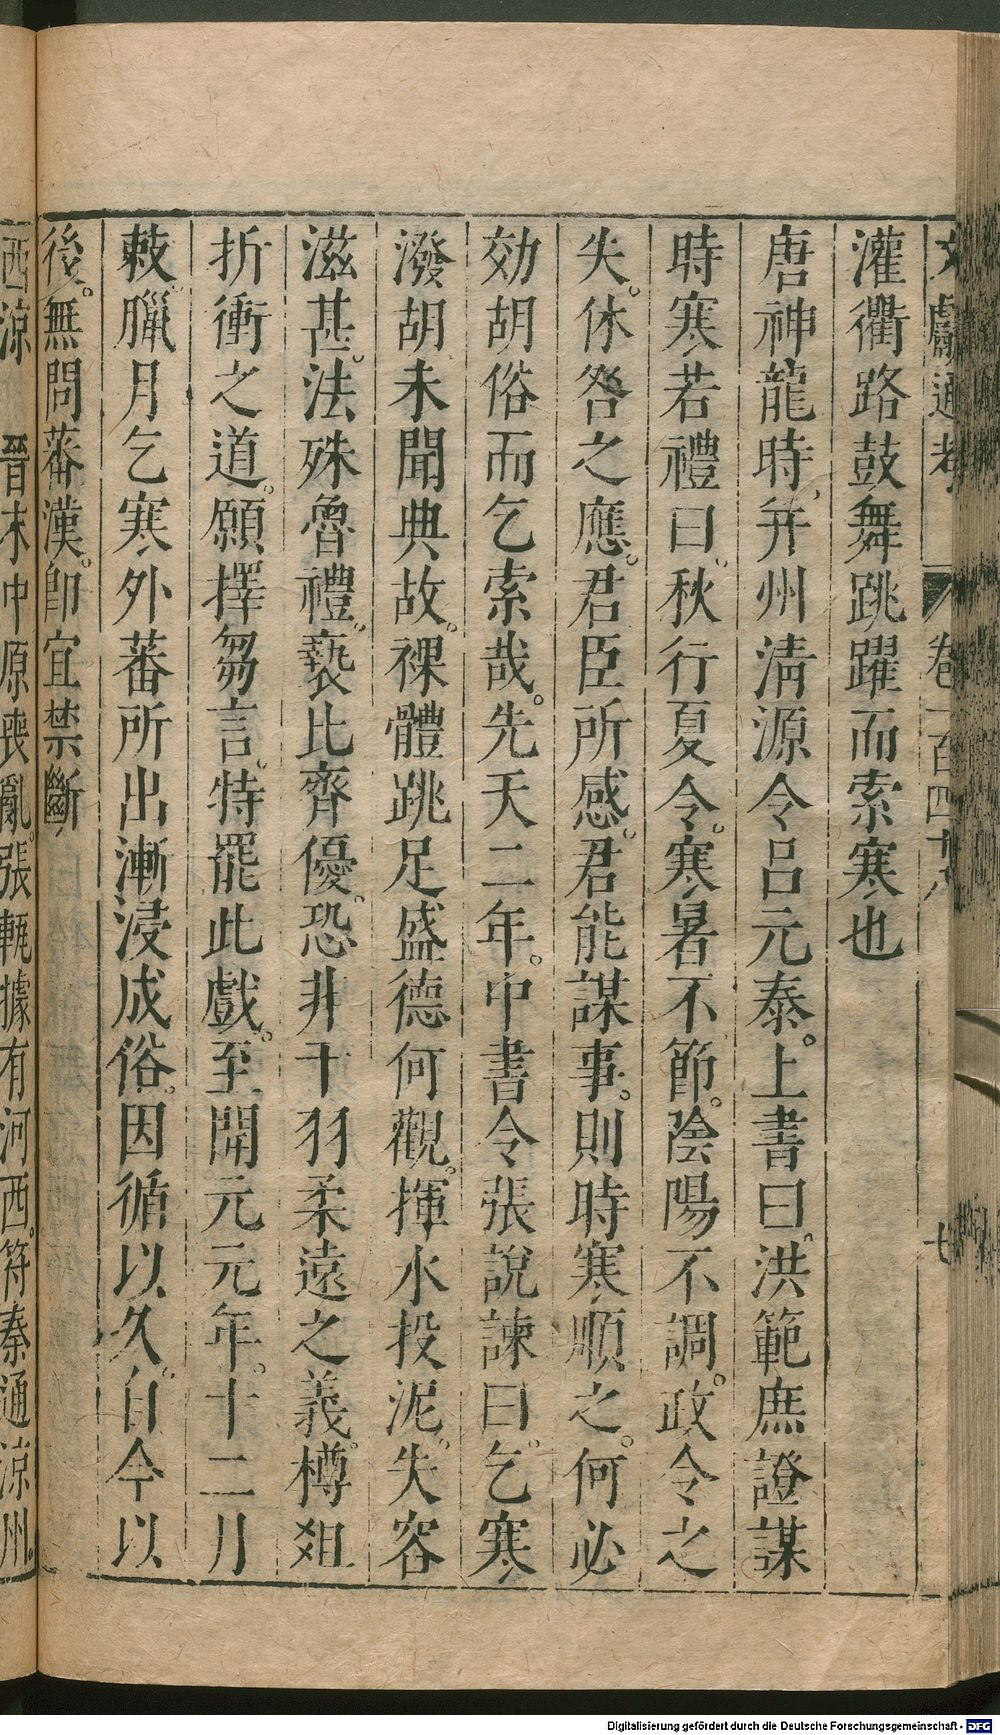 文獻通考 卷一百四十八 七
灌衢路鼓舞跳躍而索寒也
唐神龍時。并州清源令呂元泰。上書曰。洪範庶證謀
時寒若禮曰。秋行夏令。寒暑不節。陰陽不調。政令之
失。休咎之應。君臣所感。君能謀事。則時寒順之。何必
効胡俗而乞索哉。先天二年。中書令張說諫曰。乞寒
潑胡未聞典故。裸體跳足盛德何觀。揮水投泥。失容
滋甚。法殊魯禮。褻比齊優。恐非干羽柔遠之義。樽俎
折衝之道。願擇芻言。特罷此戲。至開元元年。十二月
敕。臘月乞寒、外蕃所出漸浸成俗。因循以久。自今以
後。無問蕃漢。卽宜禁斷
西涼 晉末中原喪亂。張軌據有河西。符秦通涼州
Digitalisierung gefördert durch die Deutsche Forschungsgemeinschaft - DFG